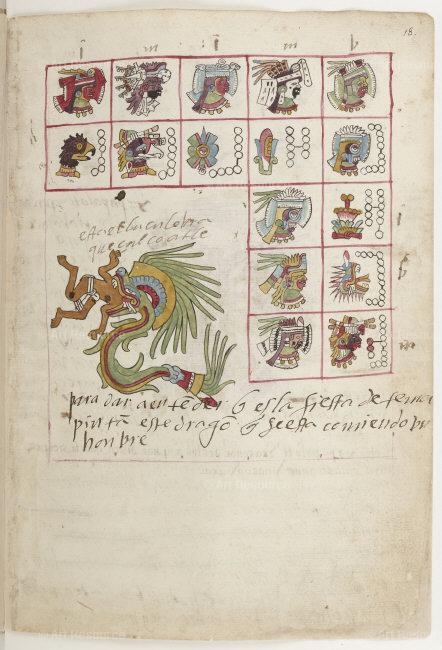 18.
i m i m b
esta es la culebra
queçalcoatle
para dar a entēder q̄ es la fiesta de temor
pintā este dragō q̄ se esta comiendo un
honbre
b
m